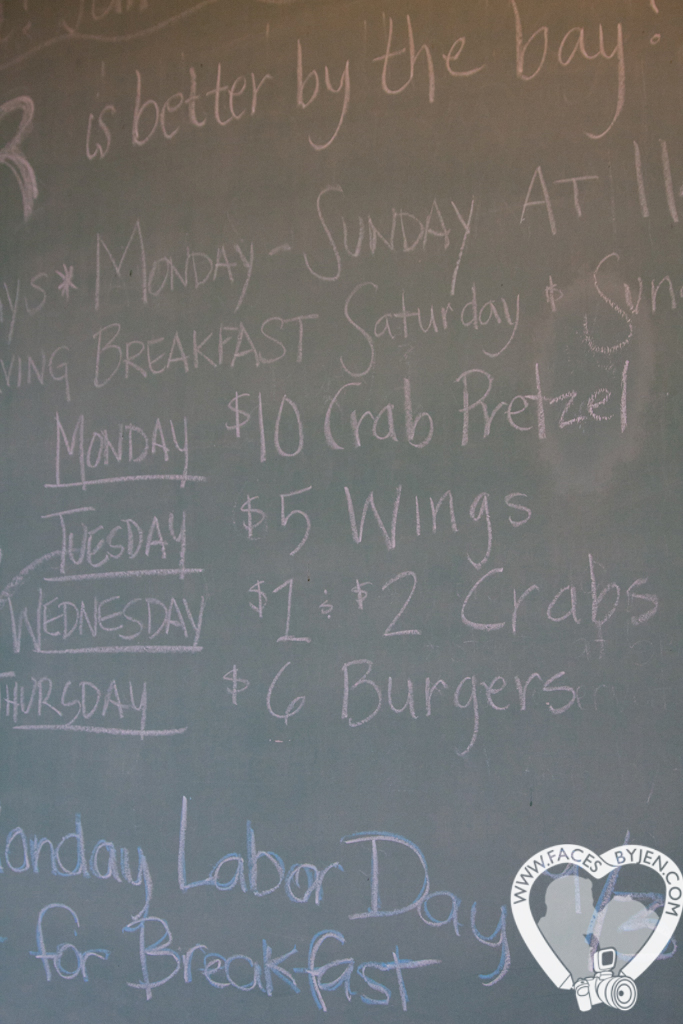 is better by the bay!
MONDAY - SUNDAY AT 11
VING BREAKFAST Saturday & Sun
MONDAY $10 Crab Pretzel
TUESDAY $5 Wings
WEDNESDAY $1 & $2 Crabs
THURSDAY $6 Burgers
onday Labor Day
for Breakfast
WWW.FACESBYJEN.COM